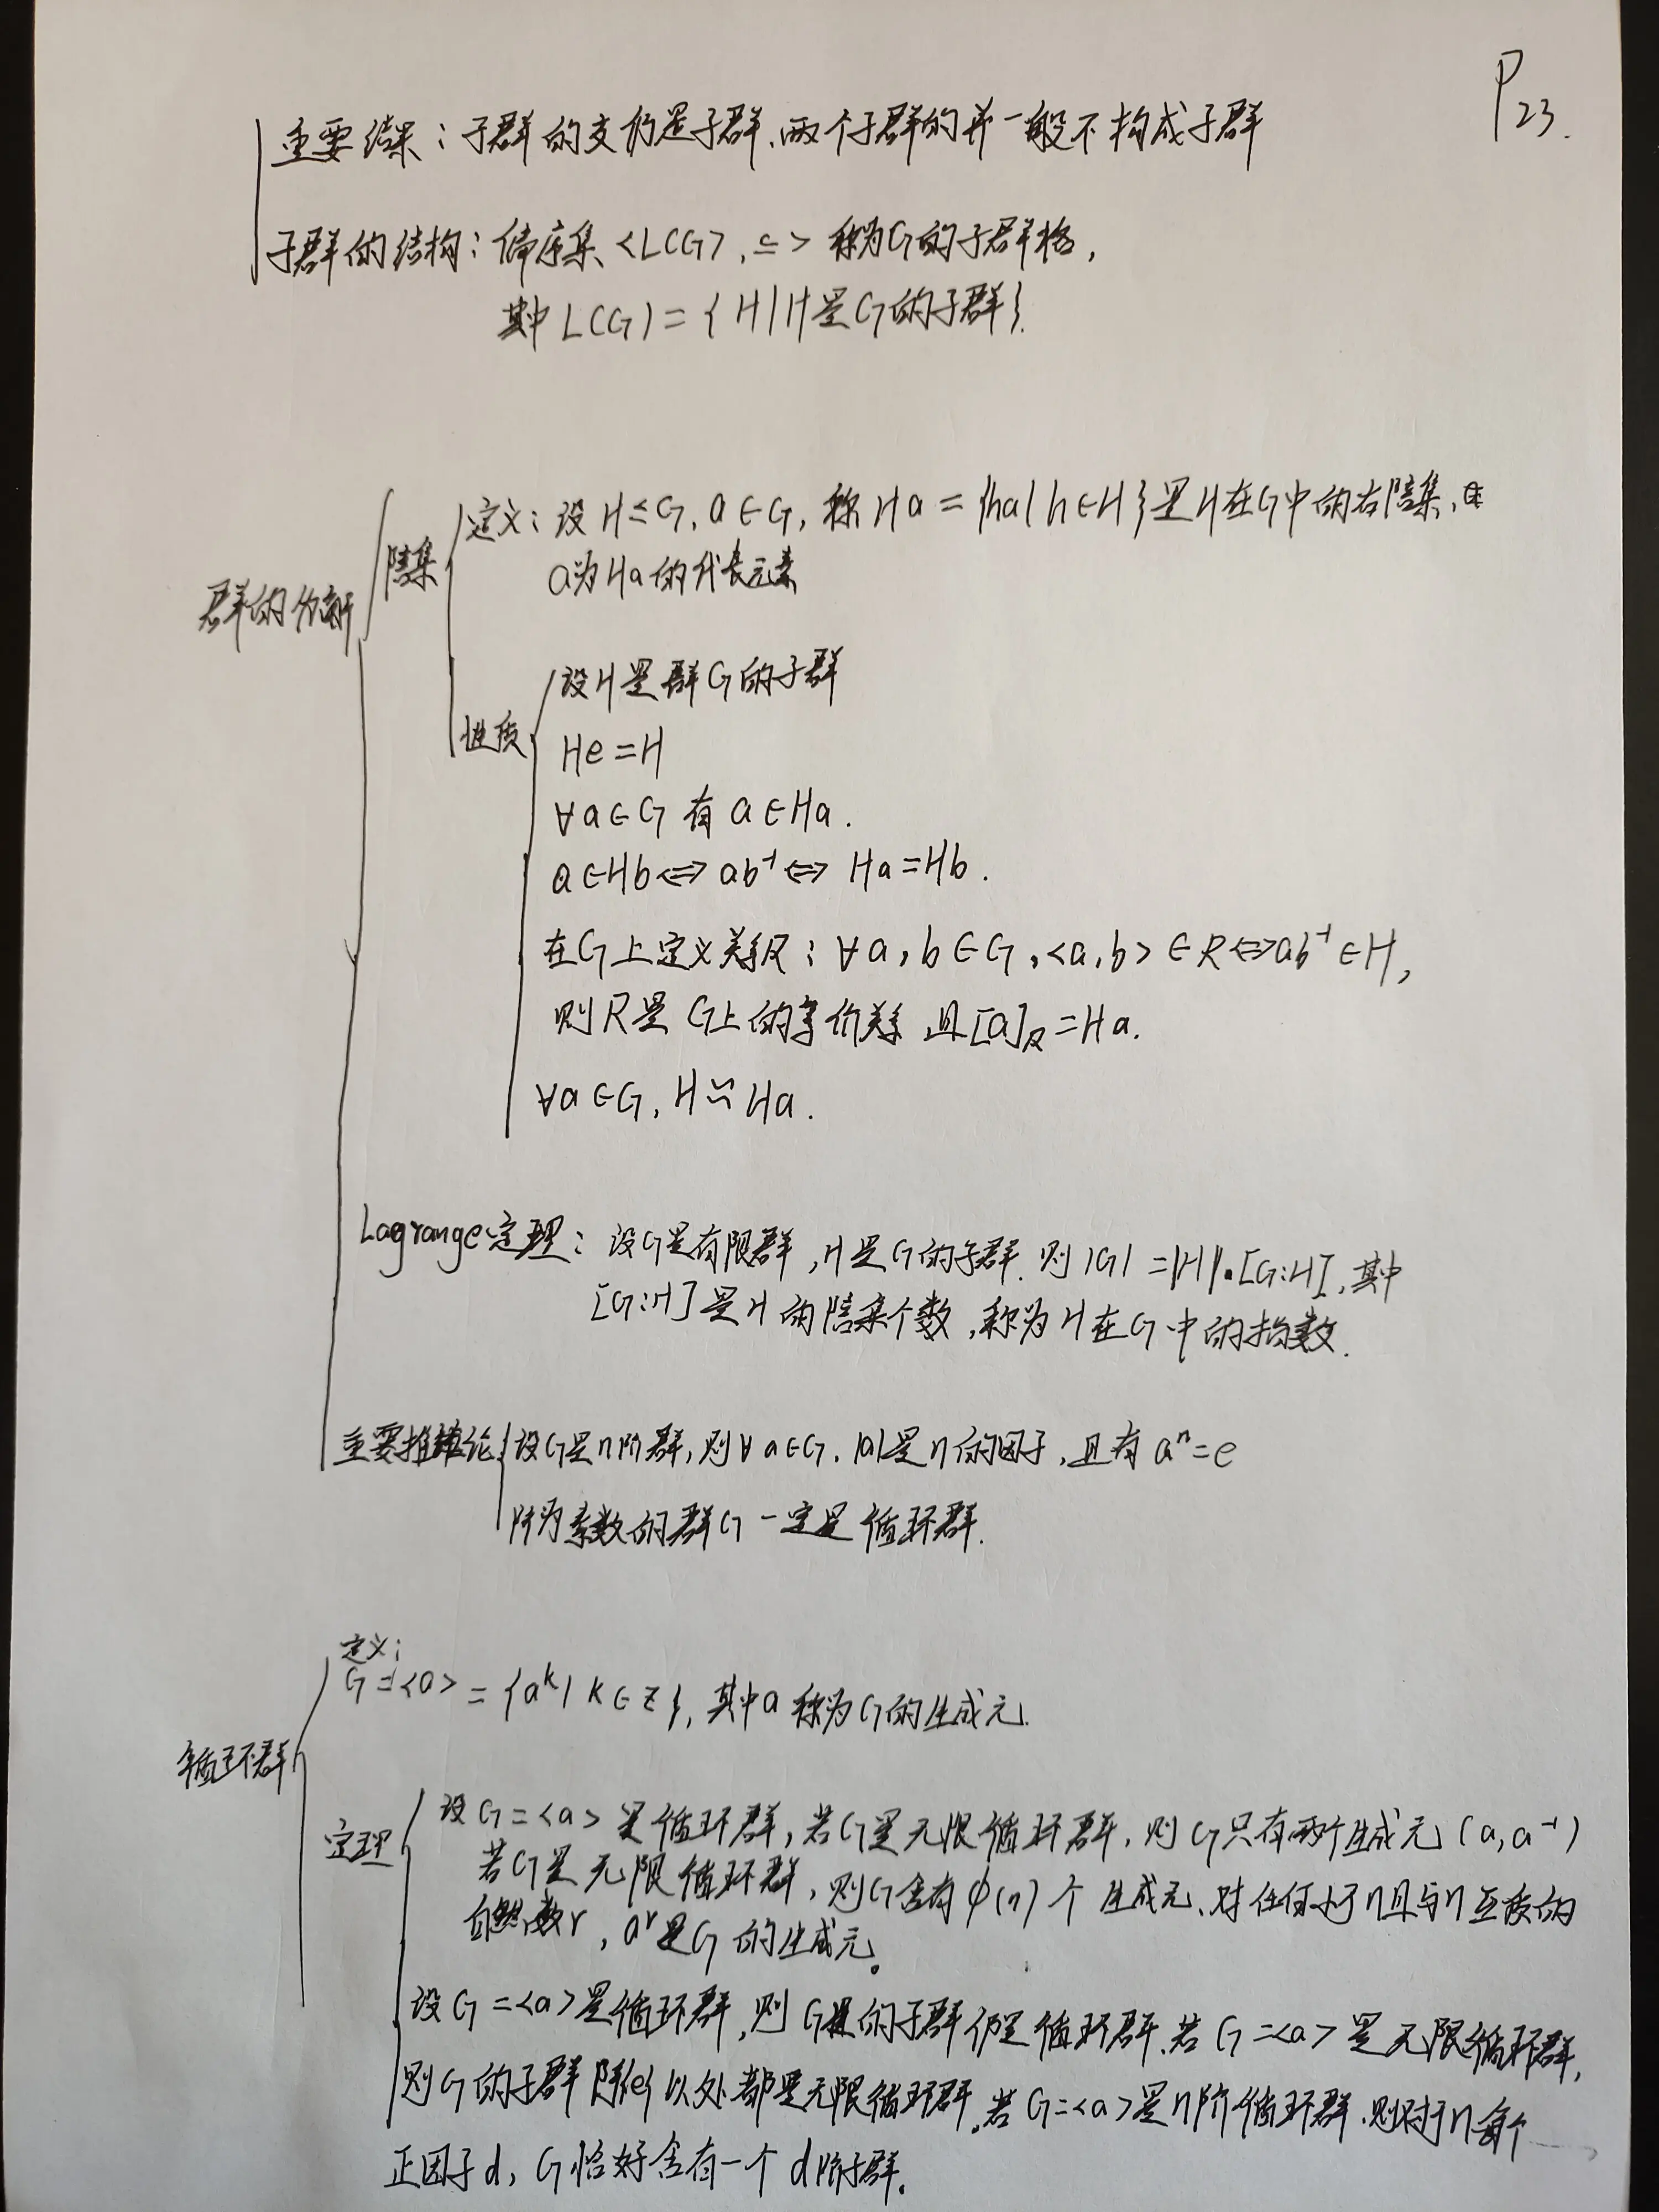 P23.
重要结果：子群的交仍是子群，两个子群的并一般不构成子群
子群的结构：偏序集<L(G), ⊆> 称为G的子群格，
其中 L(G) = {H|H是G的子群}.
群的分解
陪集
定义：设 H≤G, a∈G, 称 Ha = {ha| h∈H}是H在G中的右陪集、
a为Ha的代表元素
性质
设H是群G的子群
He=H
∀a∈G 有 a∈Ha.
a∈Hb⇔ab⁻¹⇔ Ha=Hb.
在G上定义关系R：∀a, b∈G, <a,b>∈R⇔ab⁻¹∈H,
则R是G上的等价关系 且[a]R=Ha.
∀a∈G, H≈Ha.
Lagrange定理：设G是有限群,H是G的子群.则|G|=|H|·[G:H],其中
[G:H]是H的陪集个数,称为H在G中的指数.
重要推论
设G是n阶群,则∀a∈G,|a|是n的因子,且有 aⁿ=e
阶为素数的群G一定是循环群.
定义：
G=<a> = {aᵏ| k∈Z}, 其中a称为G的生成元.
循环群
定理
设G=<a>是循环群,若G是无限循环群,则G只有两个生成元(a,a⁻¹)
若G是无限循环群,则G含有φ(n)个生成元.对任何小于n且与n互质的
自然数r, aʳ是G的生成元。
设G=<a>是循环群,则G的子群仍是循环群.若G=<a>是无限循环群,
则G的子群除{e}以处都是无限循环群.若G=<a>是n阶循环群.则对于n每个
正因子d, G恰好含有一个d阶子群。